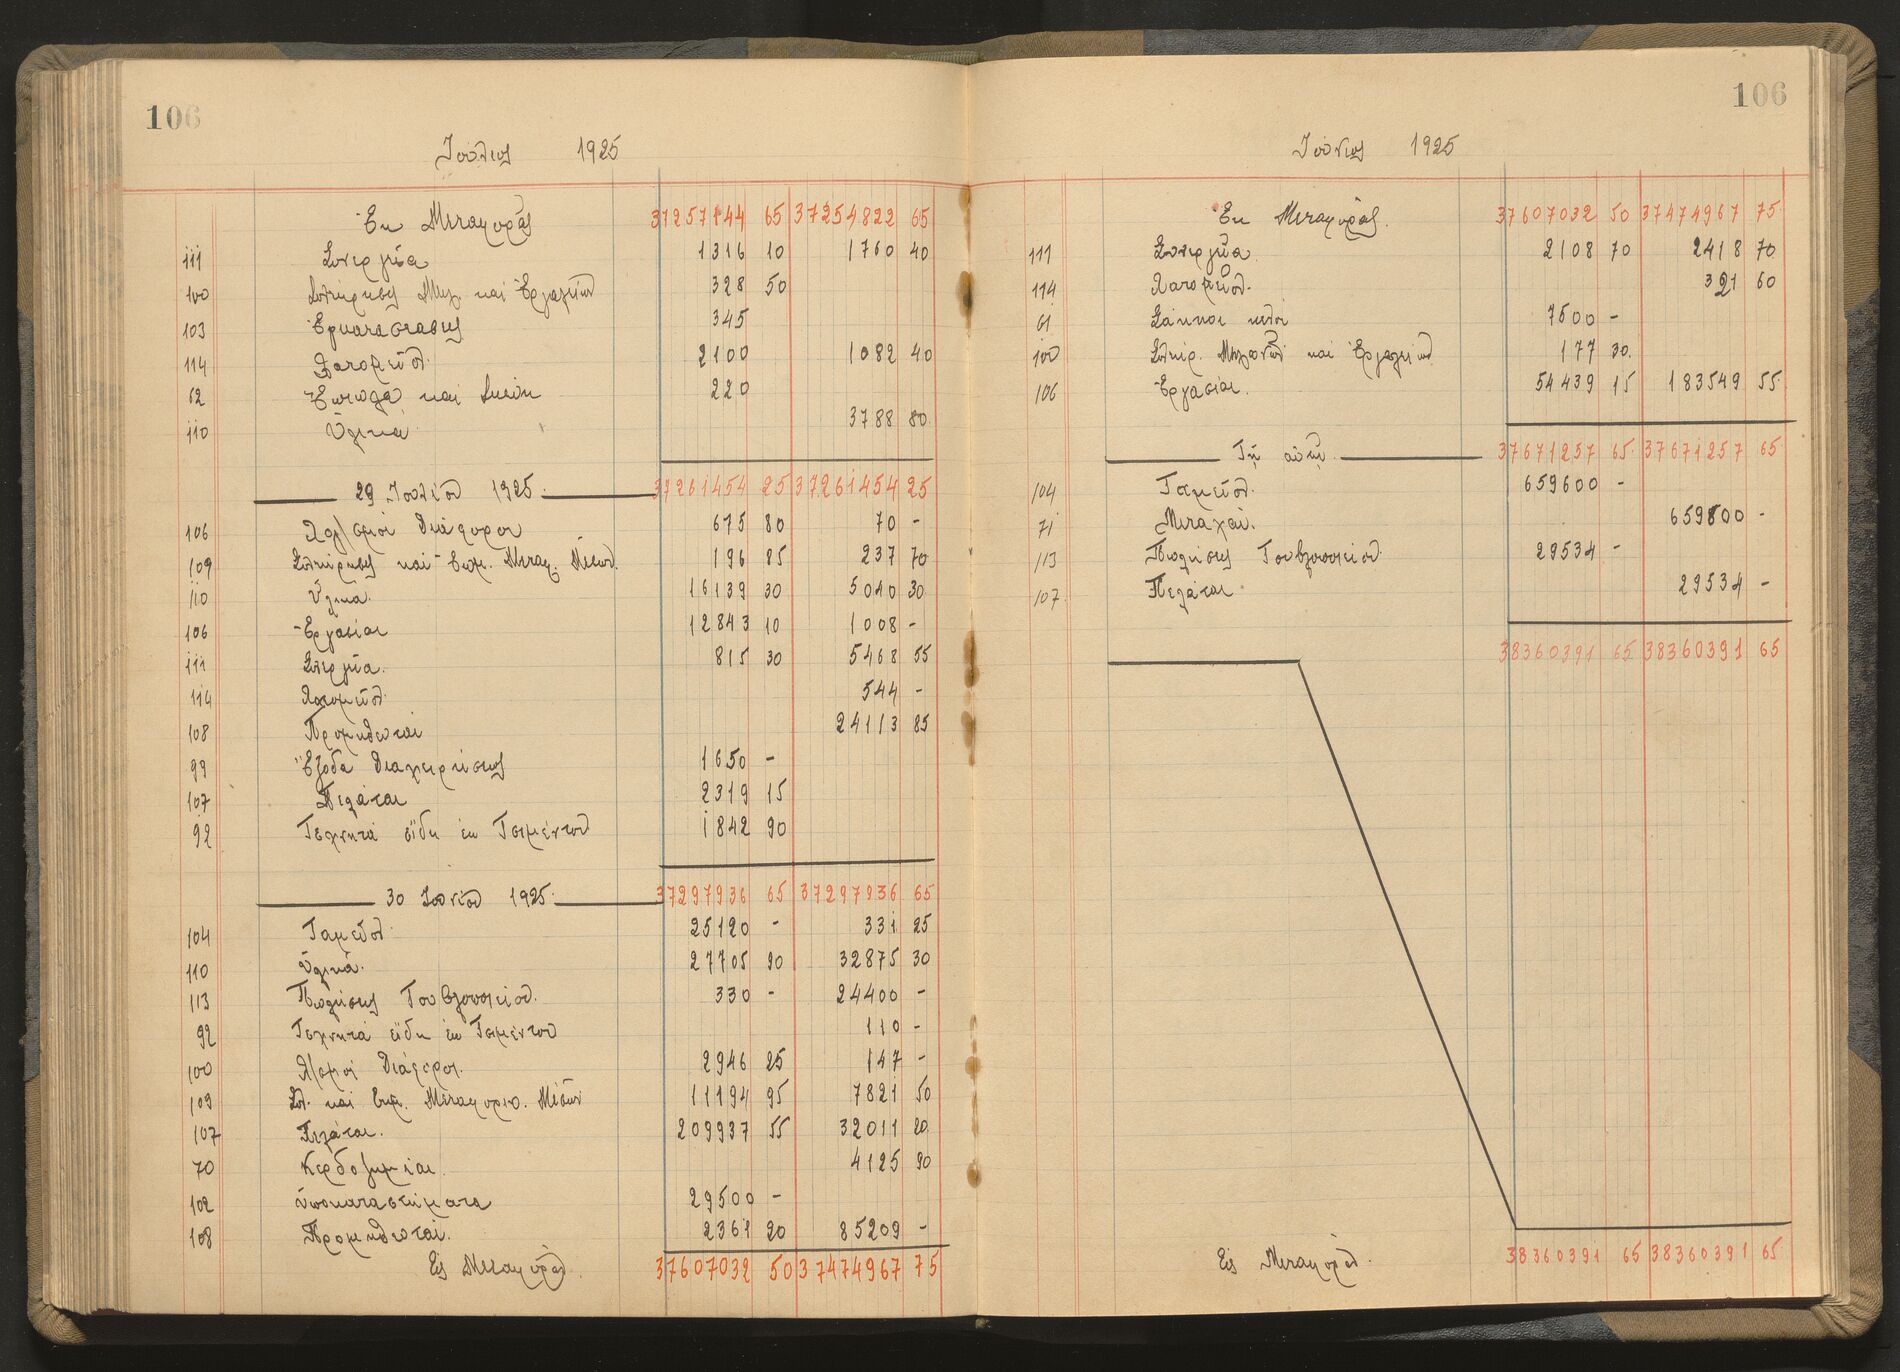 106
Ιούλιος 1925
Εκ Μεταφοράς 37257144 65 37254822 65
111 Συνεργεία 1316 10 1760 40
100 Συντήρησις Μηχ. και Εργαλείων 328 50
103 Εγκατάστασις 345
114 Λατομείον 2100 1082 40
62 Έπιπλα και Σκεύη 220
110 Υλικά 3788 80
29 Ιουλίου 1925 37261454 25 37261454 25
106 Λογ/σμοί Διάφοροι 675 80 70 -
109 Συντήρησις και Εκμ. Μεταφ. Μέσων 196 85 237 70
110 Υλικά 16139 30 5040 30
106 Εργασίαι 12843 10 1008 -
111 Συνεργεία. 815 30 5468 55
114 Λατομείον 544 -
108 Προμηθευταί 24113 85
99 Έξοδα Διαχειρίσεως 1650 -
107 Πελάται 2319 15
92 Τεχνητά είδη εκ Τσιμέντου 1842 90
30 Ιουνίου 1925. 37297936 65 37297936 65
104 Ταμείον. 25120 - 331 25
110 Υλικά. 27705 90 32875 30
113 Πωλήσεις Τουβλοποιείου. 330 - 24400 -
92 Τεχνητά είδη εκ Τσιμέντου 110 -
100 Λ/σμοί Διάφοροι. 2946 25 147 -
109 Συν. και Εκμ. Μεταφορικ. Μέσων 11194 95 7821 50
107 Πελάται. 209937 55 32011 20
70 Κερδοζημίαι. 4125 90
102 Υποκαταστήματα 29500 -
108 Προμηθευταί. 2361 20 85209 -
Εις Μεταφοράν. 37607032 50 37474967 75
106
Ιούνιος 1925
Εκ Μεταφοράς. 37607032 50 37474967 75
111 Συνεργεία. 2108 70 2418 70
114 Λατομείον. 321 60
61 Σάκκοι κενοί 7500 -
100 Συντήρ. Μηχανών και Εργαλείων 177 30.
106 Εργασίαι. 54439 15 183549 55.
Τη αυτή. 37671257 65 37671257 65
104 Ταμείον. 659600 -
71 Μετοχαί. 659800 -
113 Πωλήσεις Τουβλοποιείου. 29534 -
107. Πελάται 29534 -
38360391 65 38360391 65
Εις Μεταφοράν. 38360391 65 38360391 65